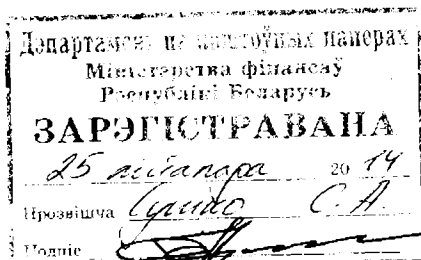 Дэпартамент па каштоўных паперах
Міністэрства фінансаў
Рэспублікі Беларусь
ЗАРЭГІСТРАВАНА
25 лістапада 2014
Прозвішча С. А.
Подпіс